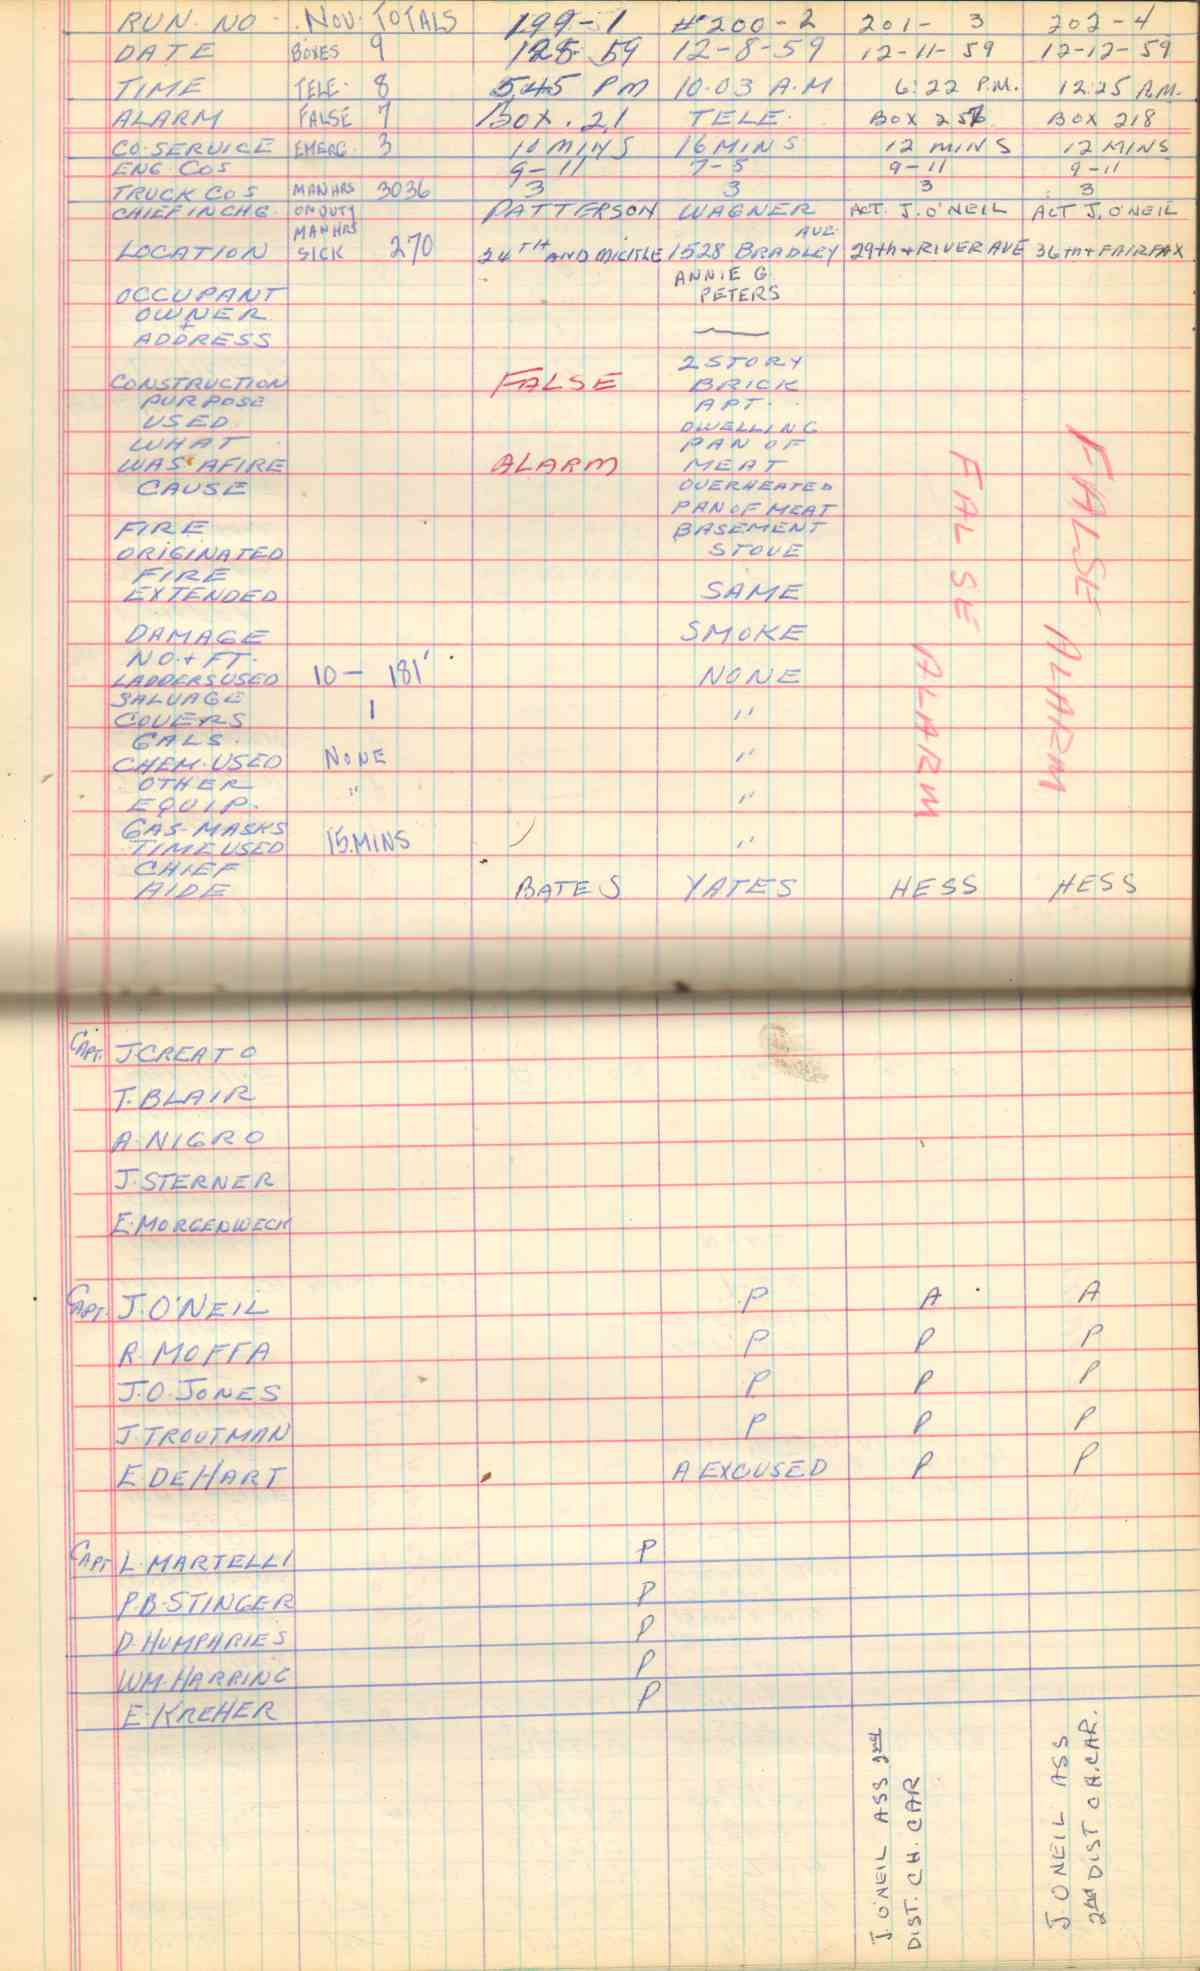 RUN. NO. NOV. TOTALS 199-1 #200-2 201- 3 202-4
DATE BOXES 9 12-8-59 12-11-59 12-12-59
TIME TELE. 8 5:45 PM 10:03 A.M 6:22 P.M. 12:25 A.M.
ALARM FALSE 7 BOX. 21 TELE. BOX BOX 218
CO. SERVICE EMERG. 3 10 MINS 16 MINS 12 MINS 12 MINS
ENG. COS 9-11 7-5 9-11 9-11
TRUCK COS MAN HRS 3036 3 3 3 3
CHIEF IN CHG. ON DUTY PATTERSON WAGNER ACT. J. O'NEIL ACT J. O'NEIL
MAN HRS AVE.
LOCATION SICK 270 24TH AND MICKLE 1528 BRADLEY 29th + RIVER AVE 36th + FAIRFAX
ANNIE G.
OCCUPANT PETERS
OWNER
+
ADDRESS
2 STORY
CONSTRUCTION FALSE BRICK
PURPOSE APT.
USED DWELLING
WHAT PAN OF
WAS AFIRE ALARM MEAT
CAUSE OVERHEATED
PAN OF MEAT
FIRE BASEMENT
ORIGINATED STOVE
FIRE
EXTENDED SAME
DAMAGE SMOKE
NO. + FT.
LADDERS USED 10 - 181' NONE
SALVAGE
COVERS 1 "
GALS.
CHEM. USED NONE "
OTHER
EQUIP. " "
GAS-MASKS
TIME USED 15 MINS "
CHIEF
AIDE BATES YATES HESS HESS
FALSE ALARM
FALSE ALARM
CAPT. J. CREATO
T. BLAIR
A. NIGRO
J. STERNER
E. MORGENWECK
CAPT. J. O'NEIL P A A
R. MOFFA P P P
J. O. JONES P P P
J. TROUTMAN P P P
E DEHART A EXCUSED P P
CAPT L. MARTELLI P
P. B. STINGER P
D. HUMPHRIES P
WM. HARRING P
E. KREHER P
J. O'NEIL ASS 2nd
DIST. CH. CAR
J. O NEIL ASS
2nd DIST CH. CAR.